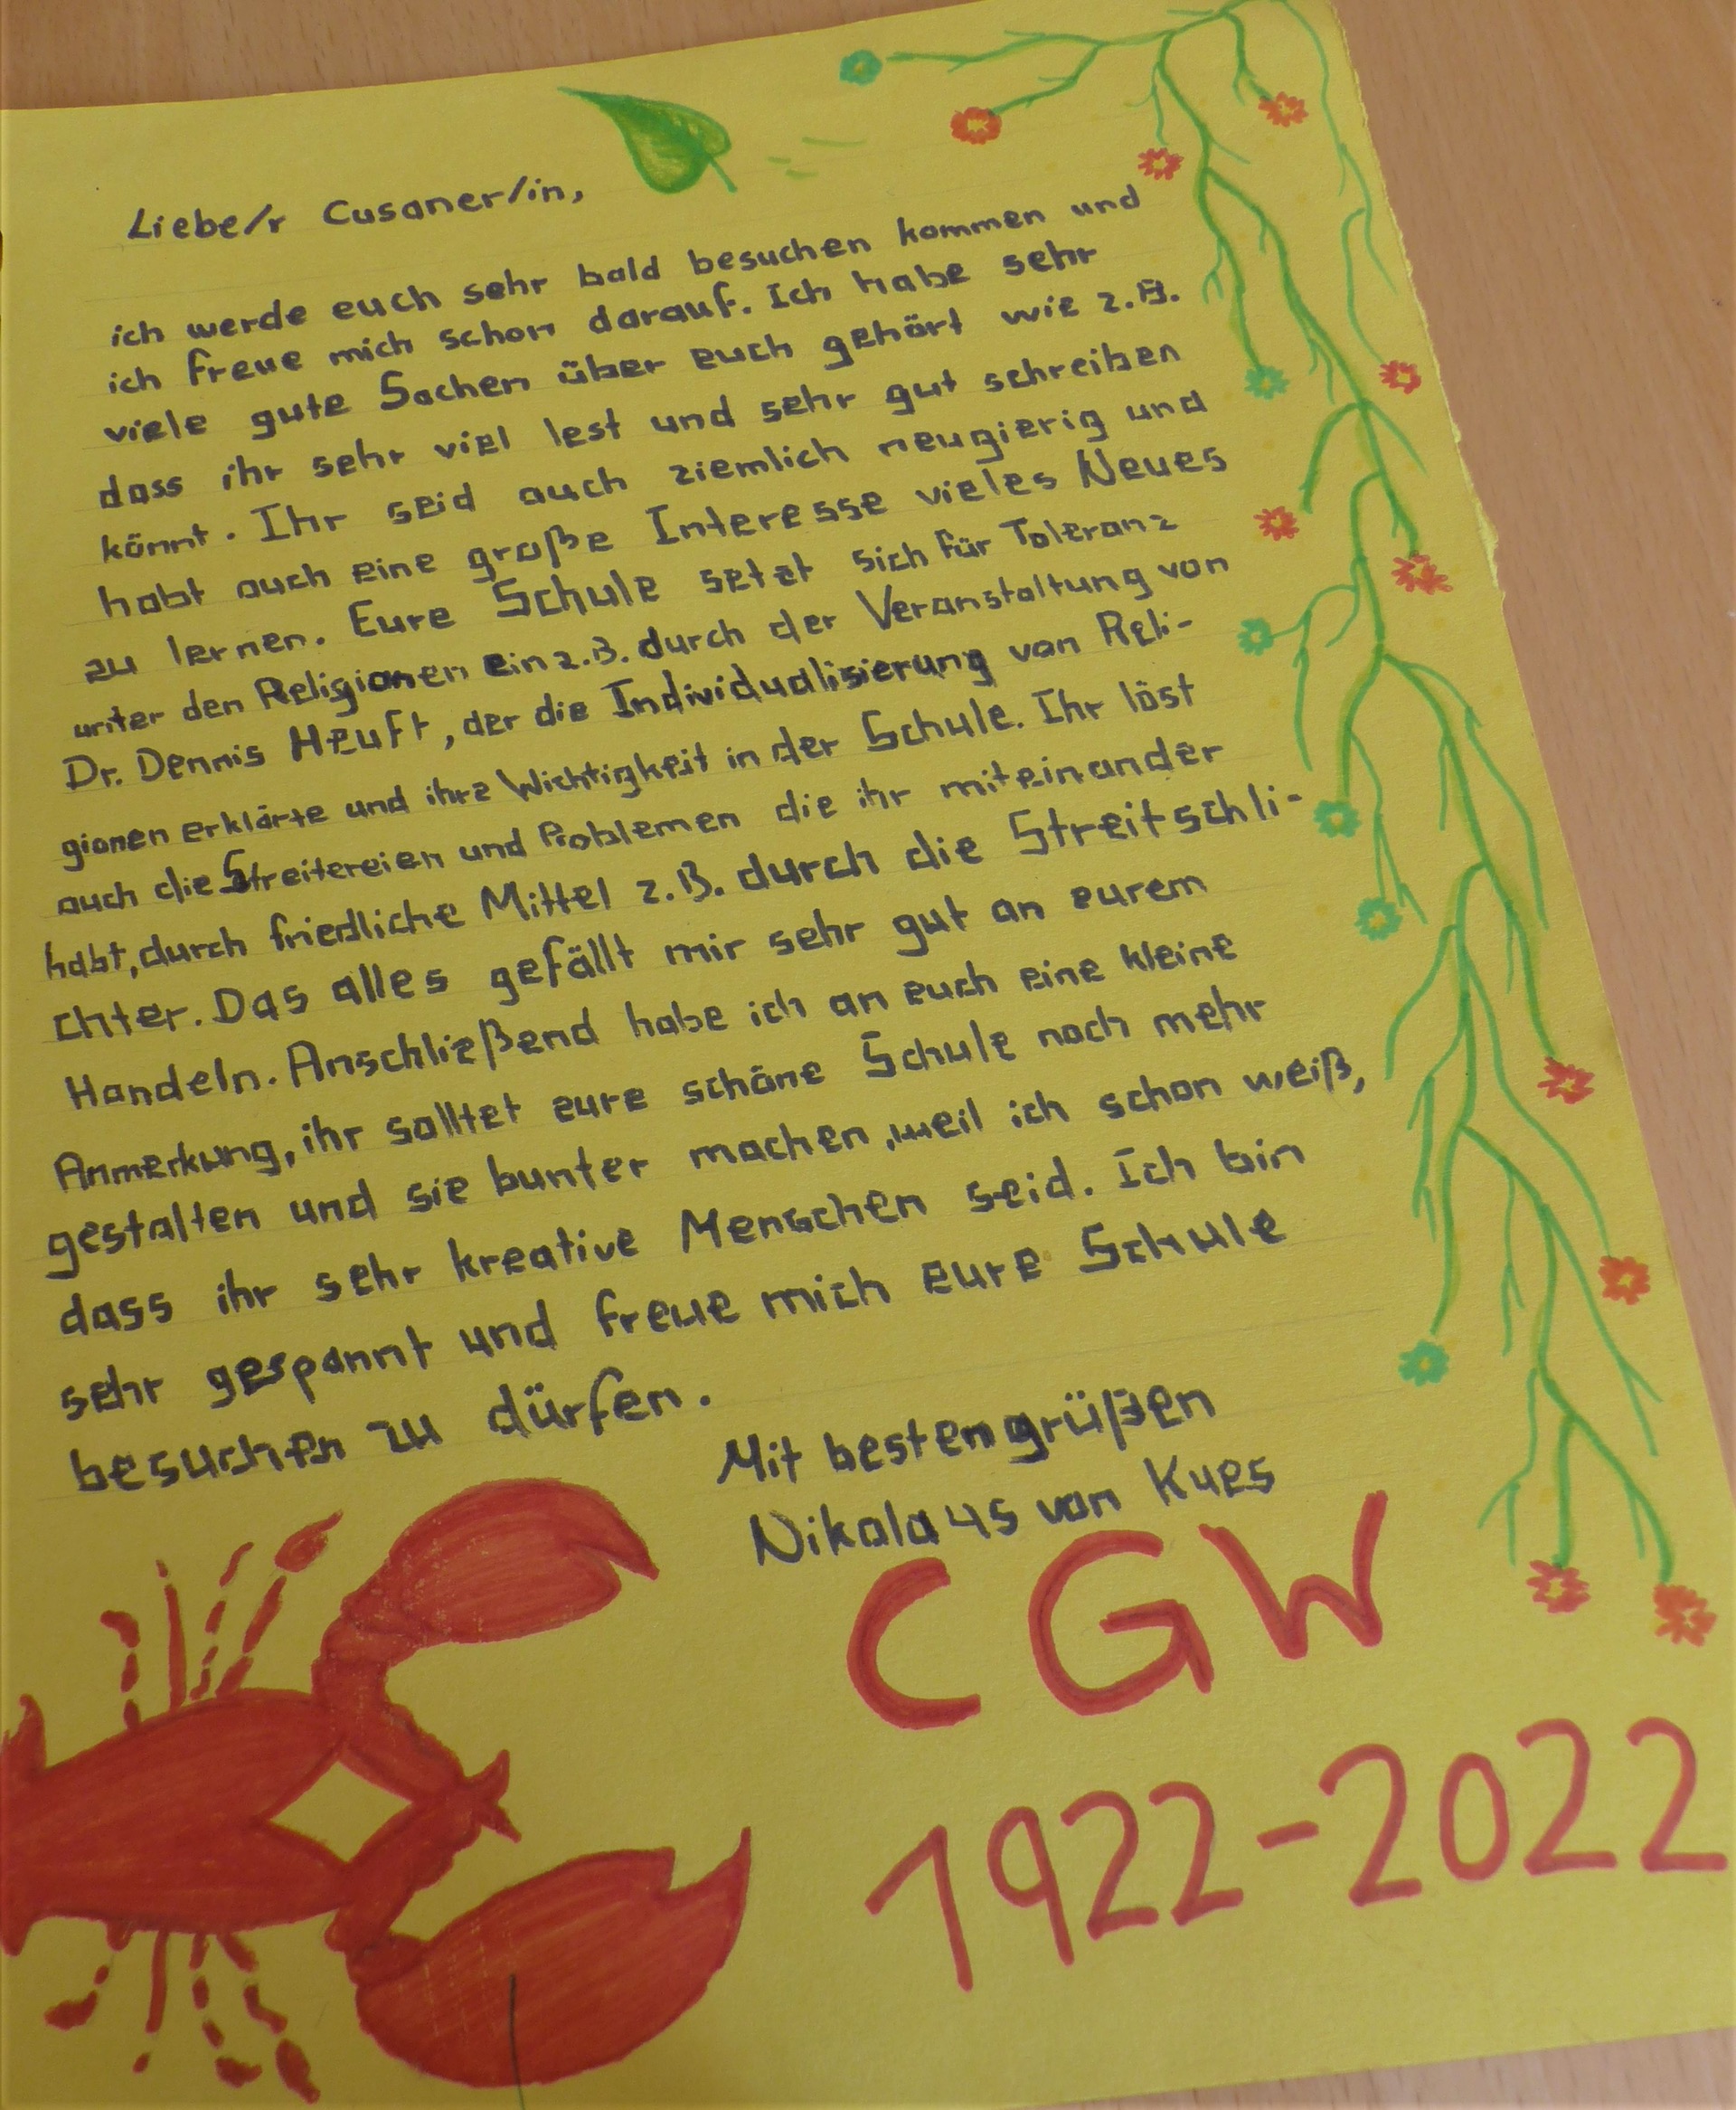 Liebe/r Cusaner/in,
ich werde euch sehr bald besuchen kommen und
ich freue mich schon darauf. Ich habe sehr
viele gute Sachen über euch gehört wie z.B.
dass ihr sehr viel lest und sehr gut schreiben
könnt. Ihr seid auch ziemlich neugierig und
habt auch eine große Interesse vieles Neues
zu lernen. Eure Schule setzt sich für Toleranz
unter den Religionen ein z.B. durch der Veranstaltung von
Dr. Dennis Heuft, der die Individualisierung von Reli-
gionen erklärte und ihre Wichtigkeit in der Schule. Ihr löst
auch die Streitereien und Problemen die ihr miteinander
habt, durch friedliche Mittel z.B. durch die Streitschli-
chter. Das alles gefällt mir sehr gut an eurem
Handeln. Anschließend habe ich an euch eine kleine
Anmerkung, ihr solltet eure schöne Schule noch mehr
gestalten und sie bunter machen, weil ich schon weiß,
dass ihr sehr kreative Menschen seid. Ich bin
sehr gespannt und freue mich eure Schule
besuchen zu dürfen.
Mit besten grüßen
Nikolaus von Kues
CGW
1922-2022